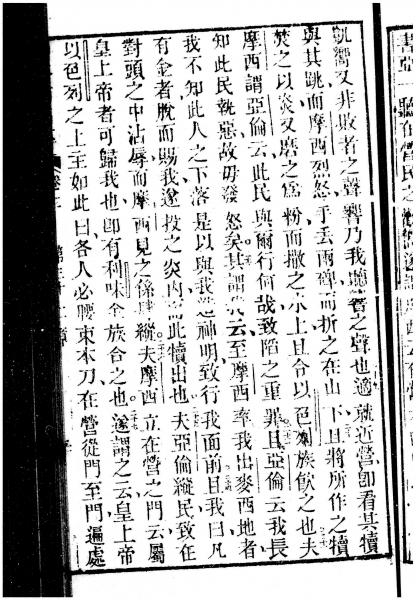 書亞一聽在營民之
凱嚮又非敗者之聲響乃我聽之聲也適就近營卽看其犢
與其跳而摩西烈怒手丟兩碑而折之在山下且將所作之犢
焚之以炎又磨之為粉而撒之水上且令以色列族飲之也夫
摩西謂亞倫云此民與爾行何哉致陷之重罪且亞倫云我長
知此民執惡故毋發怒矣其謂我云至摩西率我出麥西地者
我不知此人之下落是以與我造神明致行我面前且我曰凡
有金者脫而賜我遂投之炎內而此犢出也夫亞倫縱民致在
對頭之中沾辱而摩西見之係肆縱夫摩西立在營之門云屬
皇上帝者可歸我也卽有利味全族合之也遂謂之云皇上帝
以色列之上主如此曰各人必腰束本刀在營從門至門遍處